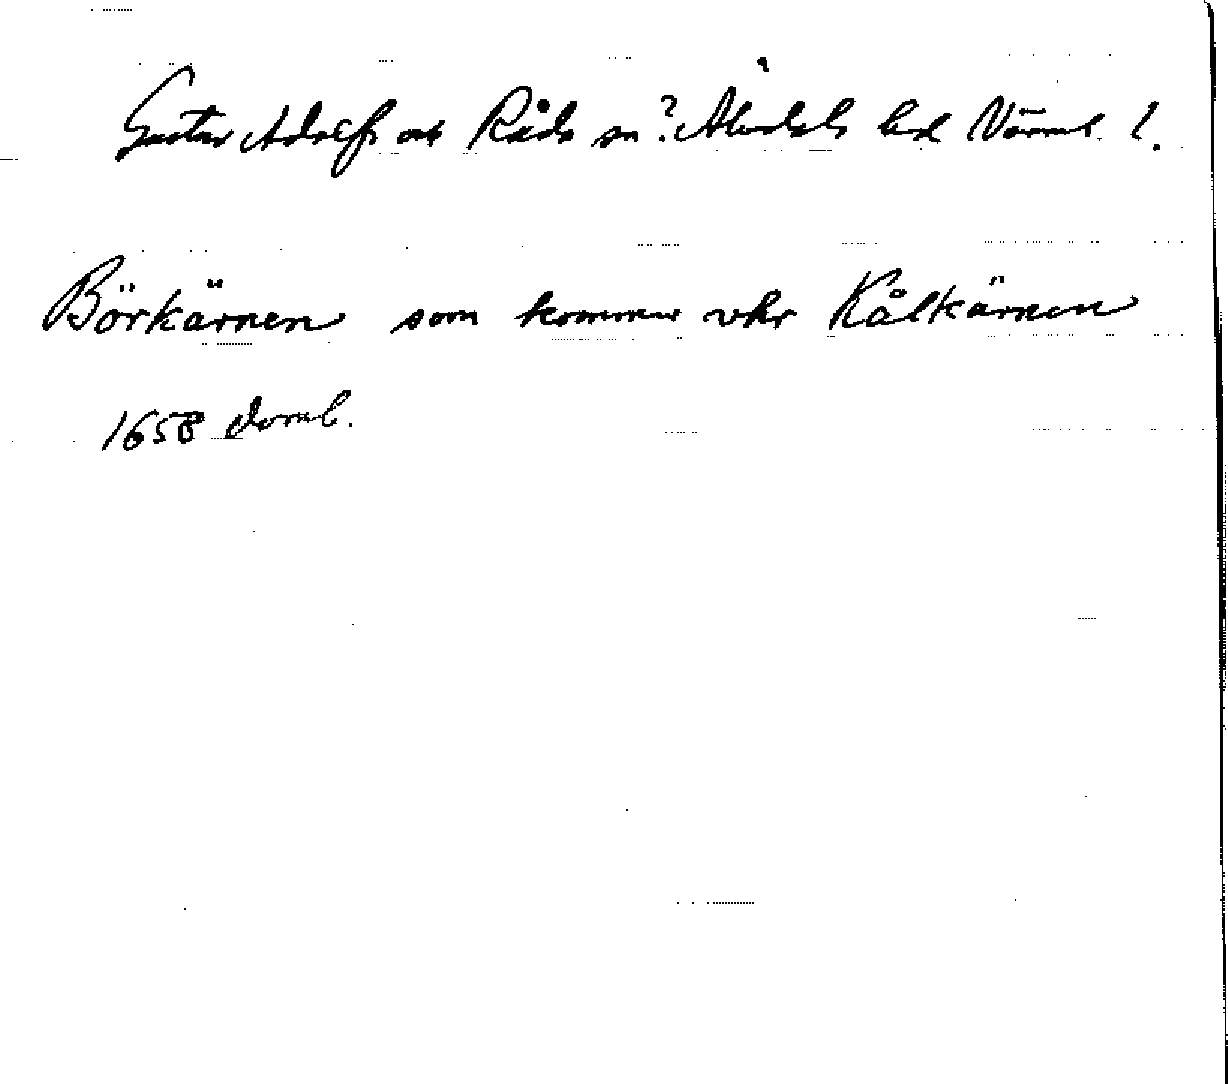 Gustav Adolfs och Råda sn? Älvdals hd Värml. l.
Börkärnen som kommer uthr Kålkärnen
1658 domb.